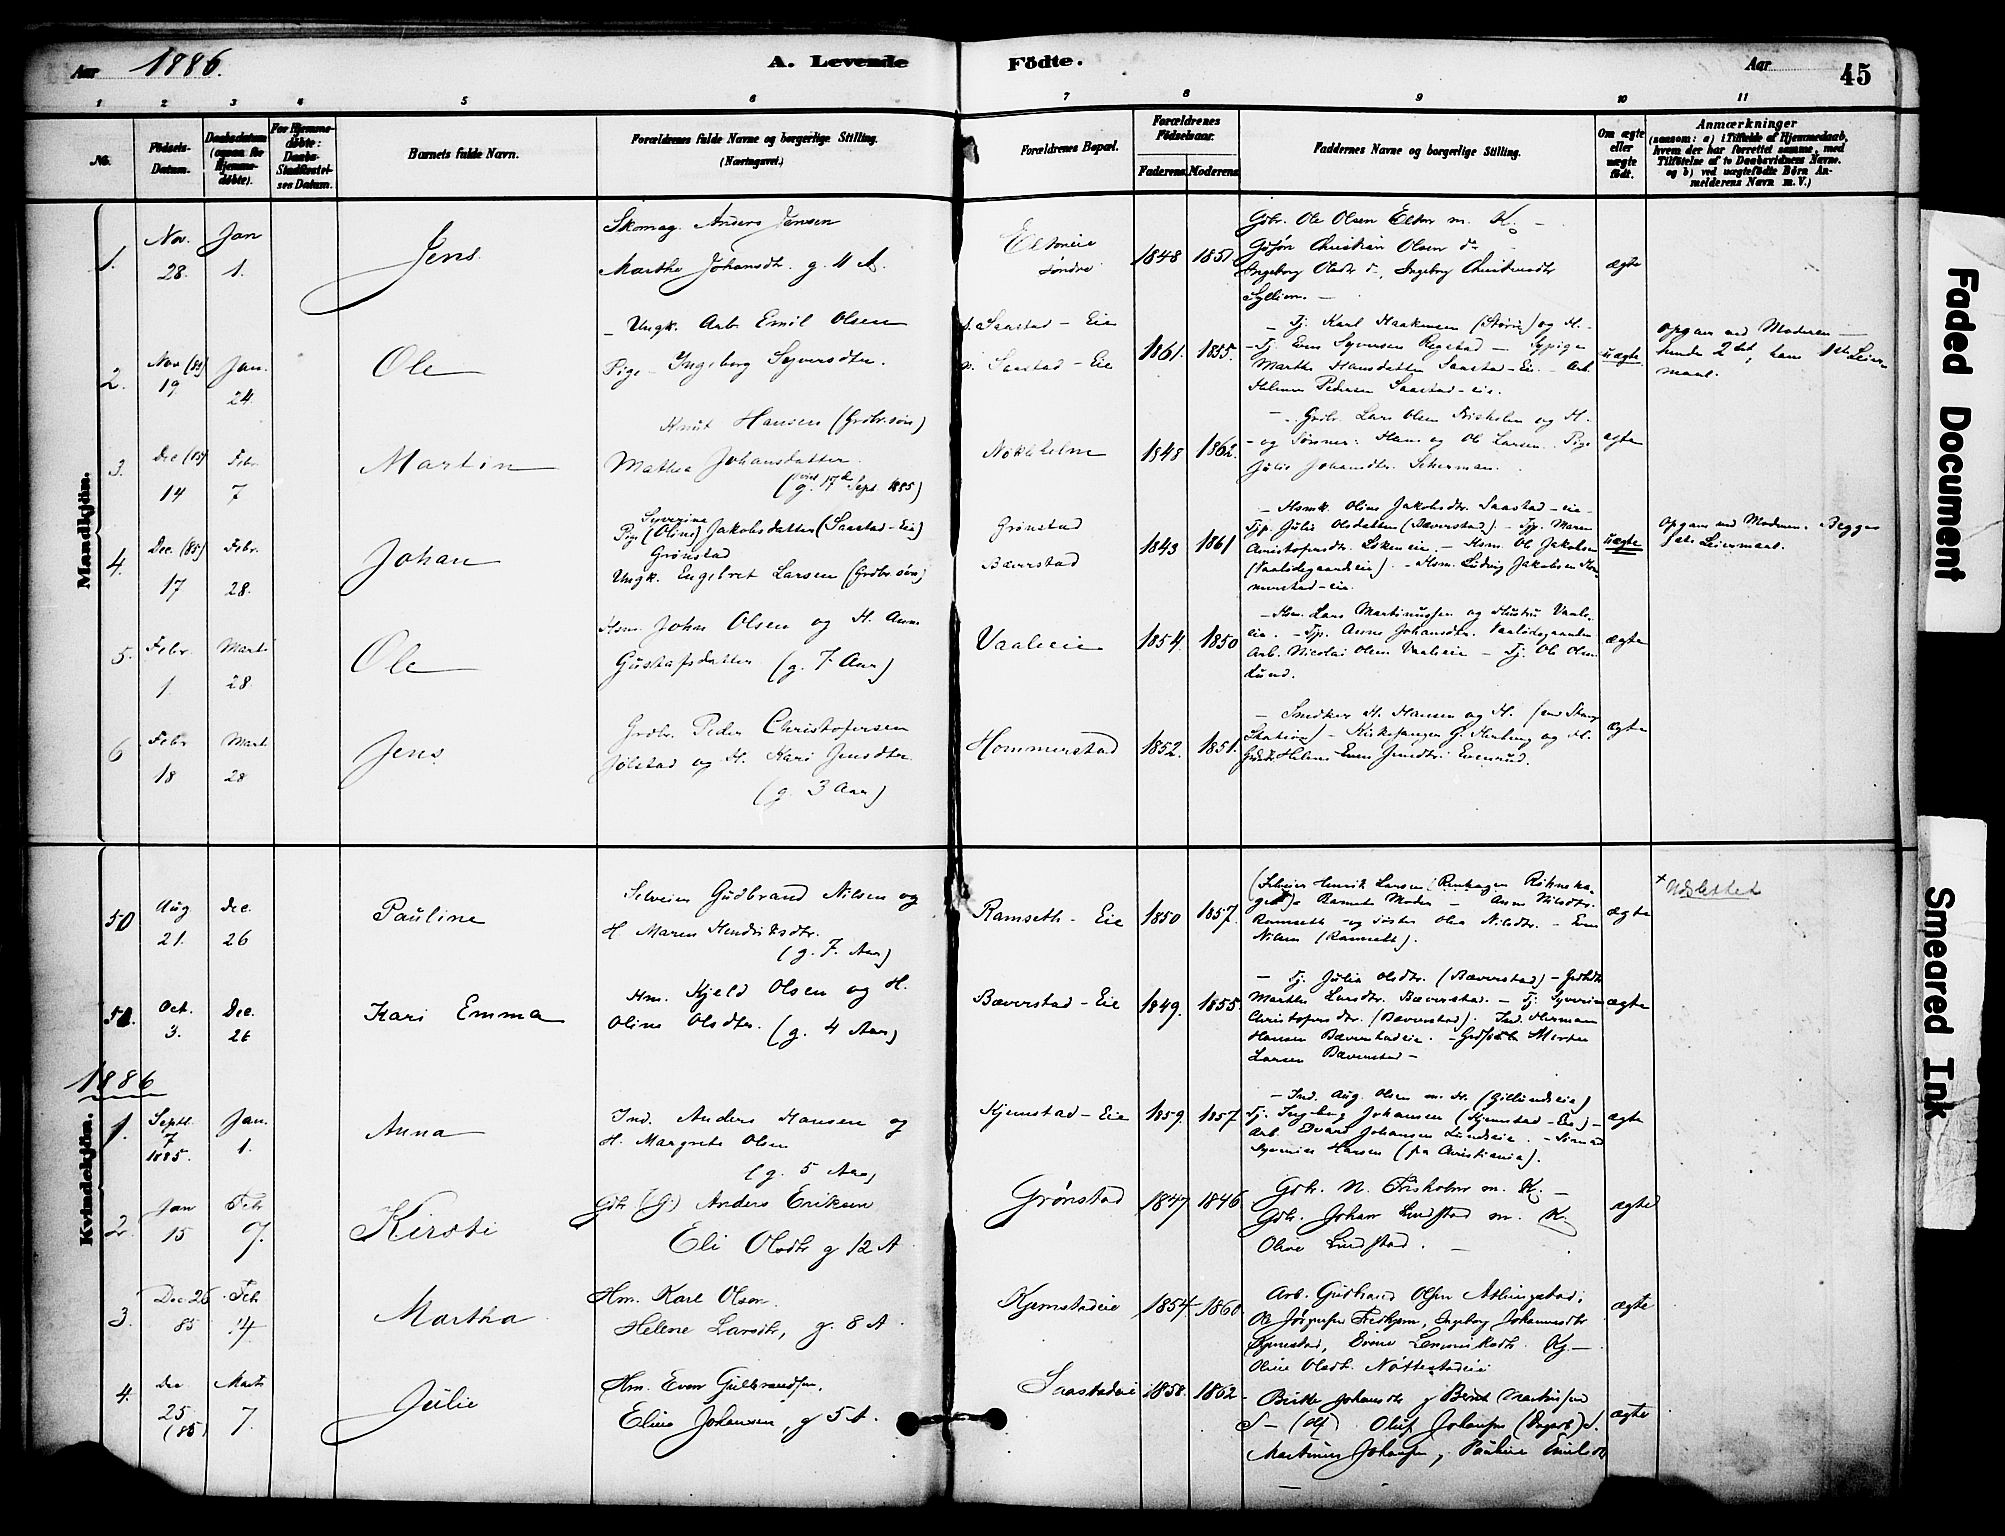 Aar 1886.
A. Levende Födte.
Aar
45
1 2 3 4 5 6 7 8 9 10 11
No.
Födsels-
Datum.
Daabsdatum
(ogsaa for
Hjemme-
döbte).
For Hjemme-
döbte:
Daabs-
Stadfæstel-
ses Datum.
Barnets fulde Navn.
Forældrenes fulde Navne og borgerlige Stilling.
(Næringsvei.)
Forældrenes Bopæl.
Forældrenes
Födselsaar.
Faderens. Moderens.
Faddernes Navne og borgerlige Stilling.
Om ægte
eller
uægte
födt.
Anmærkninger
(saasom: a) i Tilfælde af Hjemmedaab,
hvem der har forrettet samme, med
Tilföielse af to Daabsvidners Navne.
og b) ved uægtefödte Börn An-
melderens Navn m. V.)
Mandkjön.
1.
Nov. 28.
Jan 1.
Jens
Skomag. Anders Jensen
Marthe Johansdtr. g. 11 A.
Eltoneie
søndre
1848 1851
Gdbr. Ole Olsen Elton m. K. -
Gdsøn Christian Olsen do
Ingeborg Olsdtr do, Ingeborg Christensdtr
ægte
2.
Nov (85) 19
Jan. 24.
Ole
- Ungk. Arb. Emil Olsen
Pige - Ingeborg Syversdtr.
Saastad - Eie
Saastad - Eie
1861. 1855.
- Tj. Karl Haakensen og H. -
- Tj. Even Syversen - Sypige
Marthe Hansdatter Saastad - Eie. - Arb.
Pedersen Saastad - eie.
uægte
opgav ved Moderen -
hendes 2det, hans 1ste Leier-
maal.
3.
Dec (85) 14
Febr. 7
Martin
Knut Hansen (Grdbr.søn)
Mathea Johansdatter
(g. 17de Sept. 1885)
1848 1862.
- Grdbr. Lars Olsen og H.
- og Sønner: Hans og Ole Larsen. Pige
Julie Johansdtr.
ægte
4.
Dec. (85) 17
Febr. 28.
Johan
Syverine
Pige (Oline) Jakobsdatter (Saastad - Eie)
Grønstad
Ungk. Engebret Larsen (Grdbr. søn)
Grønstad
Bæverstad
1843 1861
- Hsmk. Oline Jakobsdtr. Saastad - eie -
Tjp. Julie Olsdatter (Bæverstad) - Tjp. Maren
Christophersdtr. Løkeneie. - Hsm. Ole Jakobsen
(Vaalødegaardseie). - Hsm. Ludvig Jakobsen Hom-
merstad - eie.
uægte
Opgav ved Moderen. Begges
1ste Leiermaal.
5.
Febr. 1.
Marts 28.
Ole
Hsm. Johan Olsen og H. Anne
Gustafsdatter (g. 7 Aar)
Vaaleeie
1854. 1850
- Hsm. Lars Martinussen og Hustru Vaale-
eie. - Tjp. Anne Johansdtr. Vaalødegaarden
Arb. Nicolai Olsen Vaaleeie - Tj. Ole Olsen
Lund.
ægte
6
Febr 18
Marts 28
Jens
Grdbr. Peder Christofersen
Jølstad og H. Kari Jensdtr.
(g. 3 Aar)
Hommerstad
1852. 1851.
- H. Hansen og H. (ved Stange
Station) - Kirkesanger G. og H.
Helene Jensdtr. Evenrud.
ægte
50
Aug 21.
Dec. 26
Pauline
Selveier Gudbrand Nilsen og
H. Maren Hendriksdtr.
(g. 7. Aar)
Ramseth - Eie
1850 1857.
(Selveier Henrik Larsen
Moder - Anne Nilsdtr.
Ramseth - og Søster Olea Nilsdtr. - Even
Nilsen (Ramseth).
ægte
+ Udslettet
51.
Oct. 3.
Dec. 26
Kari Emma
Hm. Kjeld Olsen og H.
Oline Olsdtr. (g. 4 Aar)
Bæverstad - Eie
1849. 1855.
- Tj. Julie Olsdtr. (Bæverstad) -
Marthe Larsdtr. Bæverstad. - Tj. Syverine
Christofersdtr. (Bæverstad). Ind. Herman
Hansen Bæverstadeie. - Morten
Larsen Bæverstad -
ægte
1886
Kvindekjön.
1.
Septb. 7 1885.
Jan. 1.
Anna
Ind. Anders Hansen og
H. Margrete Olsen
(g. 5 Aar)
Kjemstad - Eie
1859. 1857.
- Ind. Aug. Olsen m. H.
Tj. Ingeborg Johansen (Kjemstad - Eie) -
Arb. Edvard Johansen Lundseie. -
Hansen (fra Christiania).
ægte
2.
Jan 15
Febr 7.
Kirsti
Gdbr (G.) Anders Eriksen
Eli Olsdtr g 12 A
Grønstad
1847 1846
Gdbr. N. Frisholm m. K. -
Gdbr. Johan Lindstad m. K.
Oline Lindstad. -
ægte
3.
Dec. 26 85
Feb. 14
Martha
Hm. Karl Olsen.
Helene Larsdtr, g. 8 A.
Kjemstadeie
1854 - 1860
Arb. Gudbrand Olsen
Ole Jørgensen, Ingeborg Johannesdtr
Kjemstad,
Oline Olsdtr.
ægte
4.
Dec 25 (85)
Marts 7.
Julie
Hm. Even Gulbrandsen,
Eline Johansen, g 5 A.
Saastadeie
1858. 1862
Johansdtr g Bernt Martinsen
Oluf Johansen
Martinus Johansen, Pauline
ægte
Faded Document
Smeared Ink